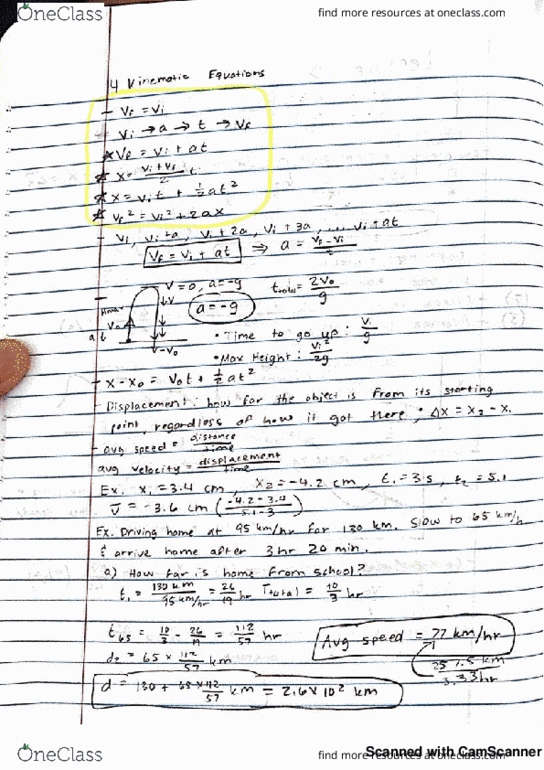 OneClass
find more resources at oneclass.com
4 Kinematic Equations
- Vf = Vi
Vi → a → t → Vf
* Vf = Vi + at
* x = (Vi + Vf)/2 t
* x = Vit + 1/2 at²
* Vf² = Vi² + 2ax
Vi, Vi+a, Vi + 2a, Vi + 3a, ... Vi + at
Vf = Vi + at ⇒ a = (Vf - Vi)/t
V = 0, a = -g
t total = 2V₀/g
Hmax
V₀
↓V
a = -g
a↓
-V₀
• Time to go up: Vi/g
• Max Height: Vi²/2g
- x - x₀ = V₀t + 1/2 at²
- Displacement: how far the object is from its starting
point, regardless of how it got there; Δx = x₂ - x,
avg speed = distance/time
avg velocity = displacement/time
Ex. x₁ = 3.4 cm, x₂ = -4.2 cm, t₁ = 3 s, t₂ = 5.1
v̅ = -3.6 cm ((-4.2-3.4)/(5.1-3))
Ex. Driving home at 95 km/hr for 130 km. Slow to 65 km/h
& arrive home after 3 hr 20 min.
a) How far is home from school?
t₁ = 130 km/95 km/hr = 26/19 hr Ttotal = 10/3 hr
t₆₅ = 10/3 - 26/19 = 112/57 hr
Avg speed = 77 km/hr
d₂ = 65 × 112/57 km
257.5 km
3.33 hr
d = 130 + 65 × 112/57 km = 2.6 × 10² km
OneClass
find more resources at oneclass.com
Scanned with CamScanner